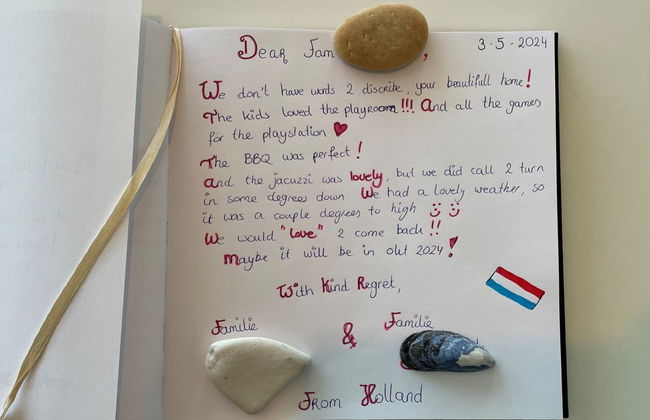 Dear Fam ,
3-5-2024
We don't have words 2 discribe, your beautifull home!
The kids loved the playroom!!! And all the games
for the playstation ♥
The BBQ was perfect!
And the jacuzzi was lovely, but we did call 2 turn
in some degrees down We had a lovely weather, so
it was a couple degrees to high
We would "love" 2 come back!!
Maybe it will be in okt 2024!
With Kind Regret,
Familie & Familie
From Holland